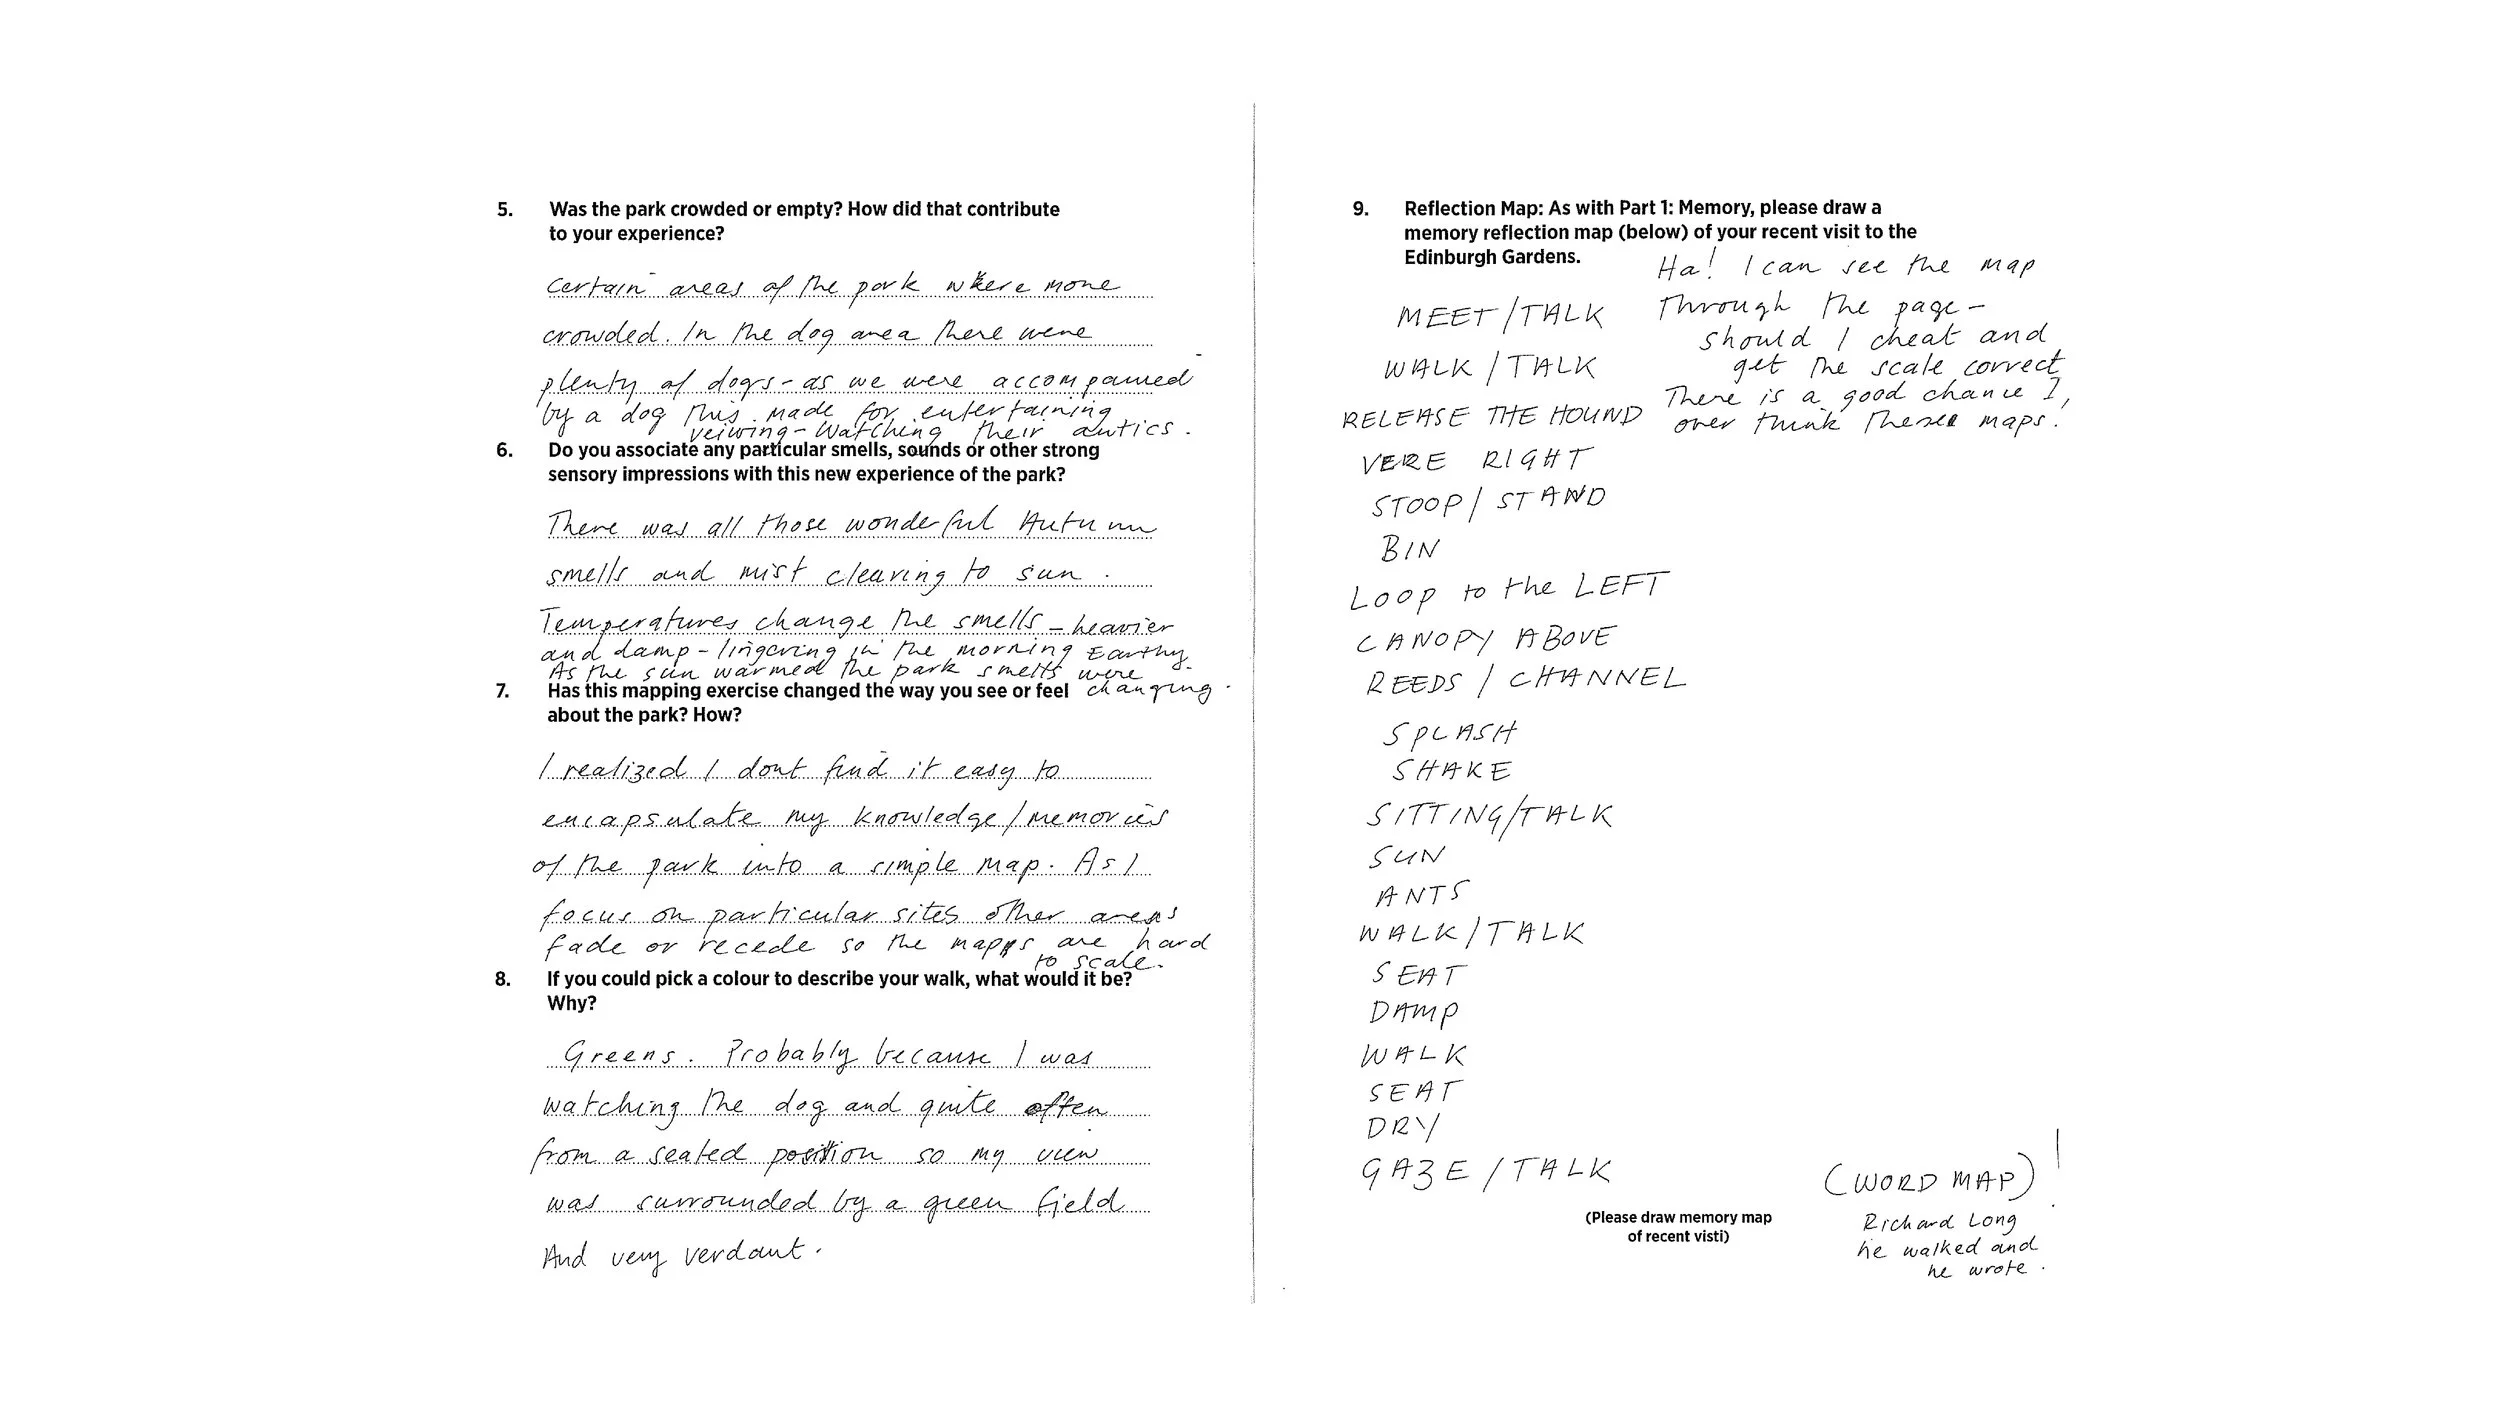 5. Was the park crowded or empty? How did that contribute
to your experience?
Certain areas of the park where more
crowded. In the dog area there were
plenty of dogs - as we were accompanied
by a dog this made for entertaining
veiwing - Watching their antics.
6. Do you associate any particular smells, sounds or other strong
sensory impressions with this new experience of the park?
There was all those wonderful Autumn
smells and mist clearing to sun.
Temperatures change the smells - heavier
and damp - lingering in the morning Earthy.
As the sun warmed the park smells were
changing.
7. Has this mapping exercise changed the way you see or feel
about the park? How?
I realized I dont find it easy to
encapsulate my knowledge/memories
of the park into a simple map. As I
focus on particular sites other areas
fade or recede so the maps are hard
to scale.
8. If you could pick a colour to describe your walk, what would it be?
Why?
Greens. Probably because I was
watching the dog and quite often
from a seated position so my view
was surrounded by a green field
And very verdant.
9. Reflection Map: As with Part 1: Memory, please draw a
memory reflection map (below) of your recent visit to the
Edinburgh Gardens.
Ha! I can see the map
through the page -
should I cheat and
get the scale correct
There is a good chance I,
over think these maps.
MEET/TALK
WALK/TALK
RELEASE THE HOUND
VERE RIGHT
STOOP/STAND
BIN
LOOP to the LEFT
CANOPY ABOVE
REEDS/CHANNEL
SPLASH
SHAKE
SITTING/TALK
SUN
ANTS
WALK/TALK
SEAT
DAMP
WALK
SEAT
DRY
GAZE/TALK
(Please draw memory map
of recent visti)
(WORD MAP)!
Richard Long
he walked and
he wrote.